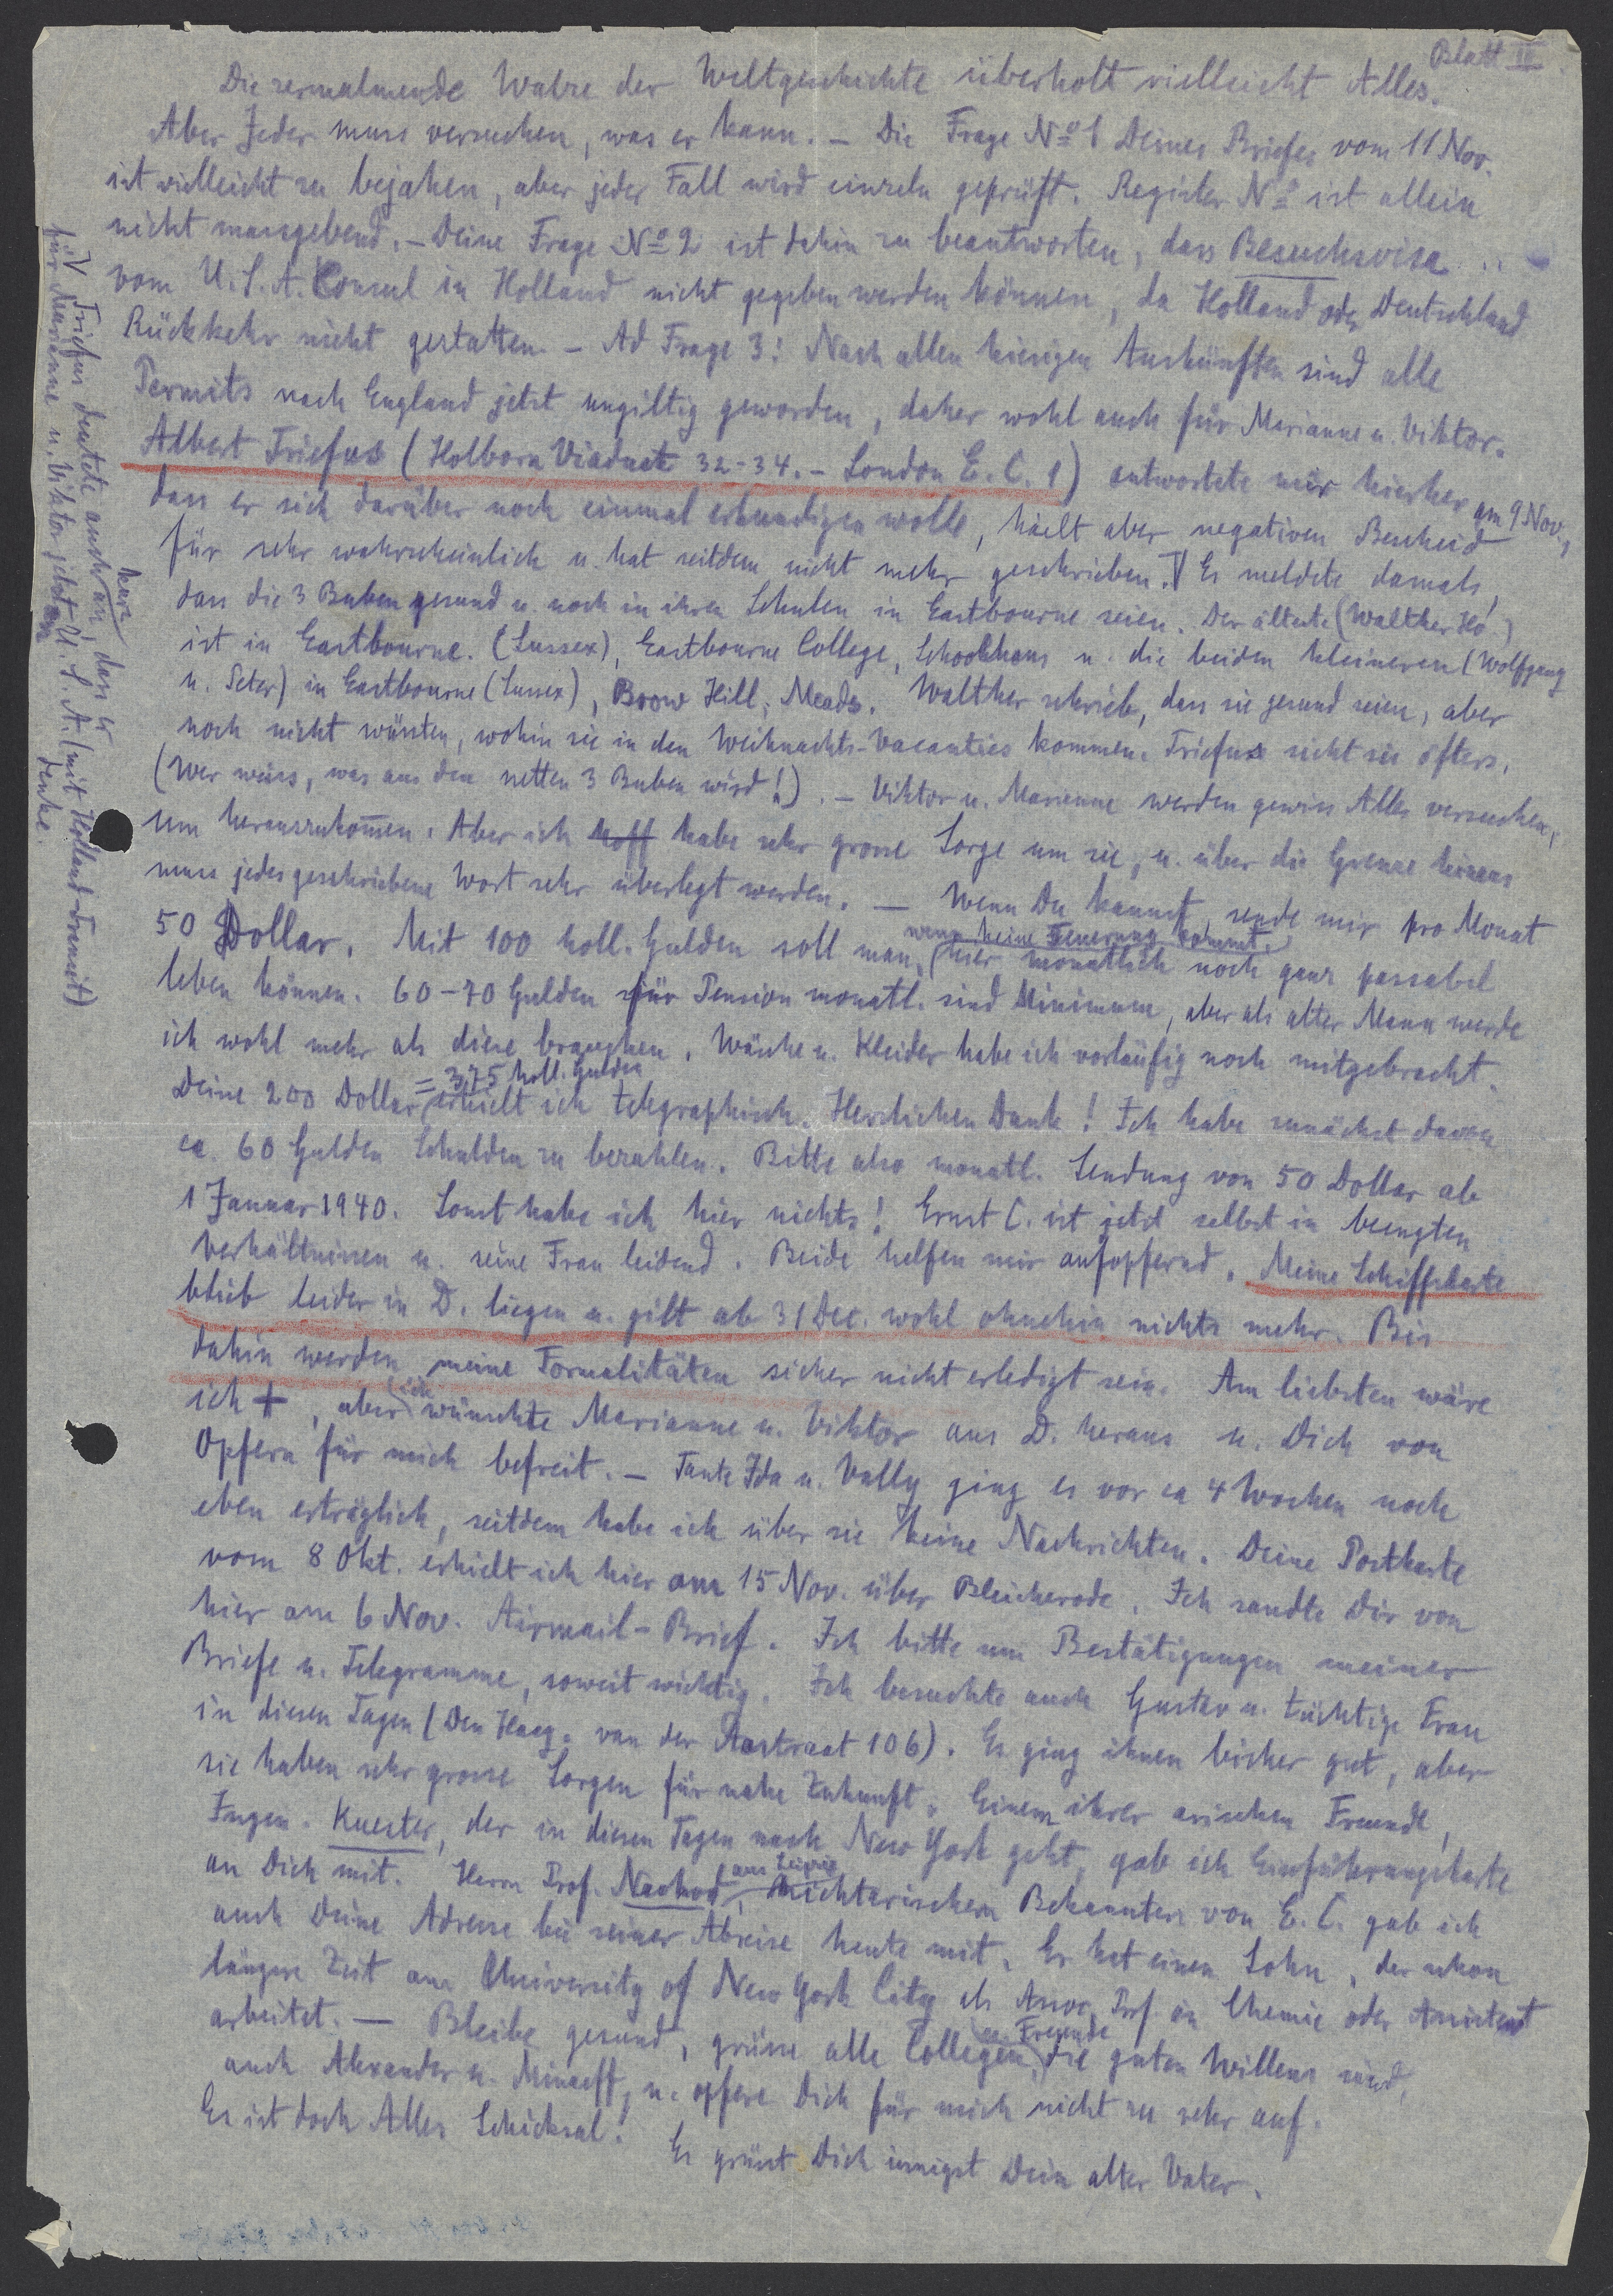 Blatt II
Die zermalmende Walze der Weltgeschichte überholt vielleicht Alles.
Aber Jeder muss versuchen, was er kann. – Die Frage No 1 Deines Briefes vom 11 Nov.
ist vielleicht zu bejahen, aber jeder Fall wird einzeln geprüft. Register No ist allein
nicht massgebend. – Deine Frage No 2 ist dahin zu beantworten, dass Besuchsvisa
vom U.S.A. Consul in Holland nicht gegeben werden können, da Holland oder Deutschland
Rückkehr nicht gestatten. – Ad Frage 3: Nach allen hiesigen Auskünften sind alle
Permits nach England jetzt ungiltig geworden, daher wohl auch für Marianne u. Viktor.
Albert Triefus (Holborn Viaduct 32-34. – London E.C.1) antwortete mir hierher am 9 Nov.,
dass er sich darüber noch einmal erkundigen wolle, hielt aber negativen Bescheid
für sehr wahrscheinlich u. hat seitdem nicht mehr geschrieben. V Er meldete damals,
dass die 3 Buben gesund u. noch in ihren Schulen in Eastbourne seien. Der älteste (Walther Ho.)
ist in Eastbourne. (Sussex), Eastbourne College, Schoolhous u. die beiden kleineren (Wolfgang
u. Peter) in Eastbourne (Sussex), Brow Hill, Meads. Walther schrieb, dass sie gesund seien, aber
noch nicht wüssten, wohin sie in den Weihnachts-Vacanties kommen. Triefus sieht sie öfters.
(Wer weiss, was aus den netten 3 Buben wird!). – Viktor u. Marianne werden gewiss Alles versuchen,
um herauszukommen. Aber ich hoff habe sehr grosse Sorge um sie, u. über die Grenze hinaus
muss jedes geschriebene Wort sehr überlegt werden. — Wenn Du kannst, sende mir pro Monat
50 Dollar. Mit 100 holl. Gulden soll man, (wenn keine Teuerung kommt,) hier monatlich noch ganz passabel
leben können. 60-70 Gulden für Pension monatl. sind Minimum, aber als alter Mann werde
ich wohl mehr als diese brauchen. Wäsche u. Kleider habe ich vorläufig noch mitgebracht.
Deine 200 Dollar = 375 holl. Gulden erhielt ich telegraphisch. Herzlichen Dank! Ich habe zunächst davon
ca. 60 Gulden Schulden zu bezahlen. Bitte also monatl. Sendung von 50 Dollar ab
1 Januar 1940. Sonst habe ich hier nichts! Ernst C. ist jetzt selbst in beengten
Verhältnissen u. seine Frau leidend. Beide helfen mir aufopfernd. Meine Schiffskarte
blieb leider in D. liegen u. gilt ab 31 Dec. wohl ohnehin nichts mehr. Bis
dahin werden meine Formalitäten sicher nicht erledigt sein. Am liebsten wäre
ich +, aber ich wünschte Marianne u. Viktor aus D. heraus u. Dich von
Opfern für mich befreit. – Tante Ida u. Vally ging es vor ca 4 Wochen noch
eben erträglich, seitdem habe ich über sie keine Nachrichten. Deine Postkarte
vom 8 Okt. erhielt ich hier am 15 Nov. über Bleicherode. Ich sandte Dir von
hier am 6 Nov. Airmail-Brief. Ich bitte um Bestätigungen meiner
Briefe u. Telegramme, soweit wichtig. Ich besuchte auch Gustav u. tüchtige Frau
in diesen Tagen (Den Haag. van der Aastraat 106). Es ging ihnen bisher gut, aber
sie haben sehr grosse Sorgen für nahe Zukunft. Einem ihrer arischen Freunde,
Ingen. Kuester, der in diesen Tagen nach New York geht, gab ich Einführungskarte
an Dich mit. Herrn Prof. Nachod aus Leipzig, nichtarischen Bekannten von E.C. gab ich
auch Deine Adresse bei seiner Abreise heute mit. Er hat einen Sohn, der schon
längere Zeit am University of New York City als Assoc. Prof in Chemie oder Assistent
arbeitet. — Bleibe gesund, grüsse alle Collegen u. Freunde, die guten Willens sind,
auch Alexander u. Minaeff, u. opfere Dich für mich nicht zu sehr auf.
Es ist doch Alles Schicksal!
Es grüsst Dich innigst Dein alter Vater.
V Triefus deutete auch kurz an, dass er
für Marianne u. Viktor jetzt an U.S.A. (mit Holland-Transit)
denke.